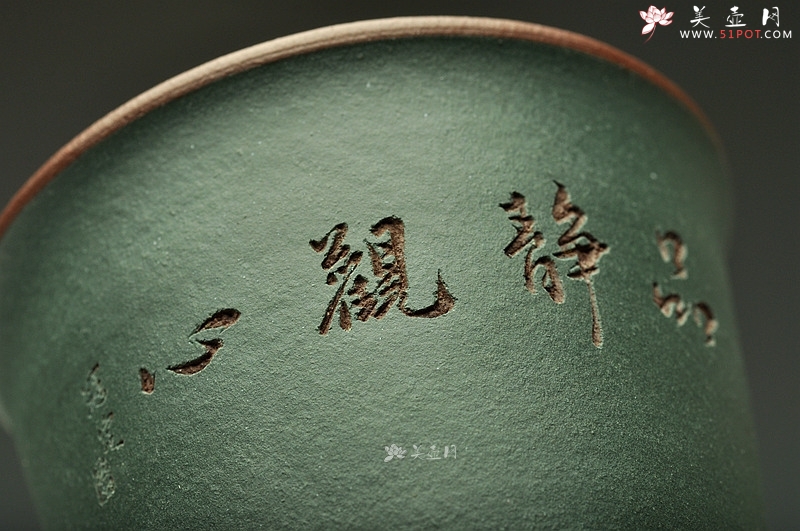 美壶网
WWW.51POT.COM
品静觀心
美壶网